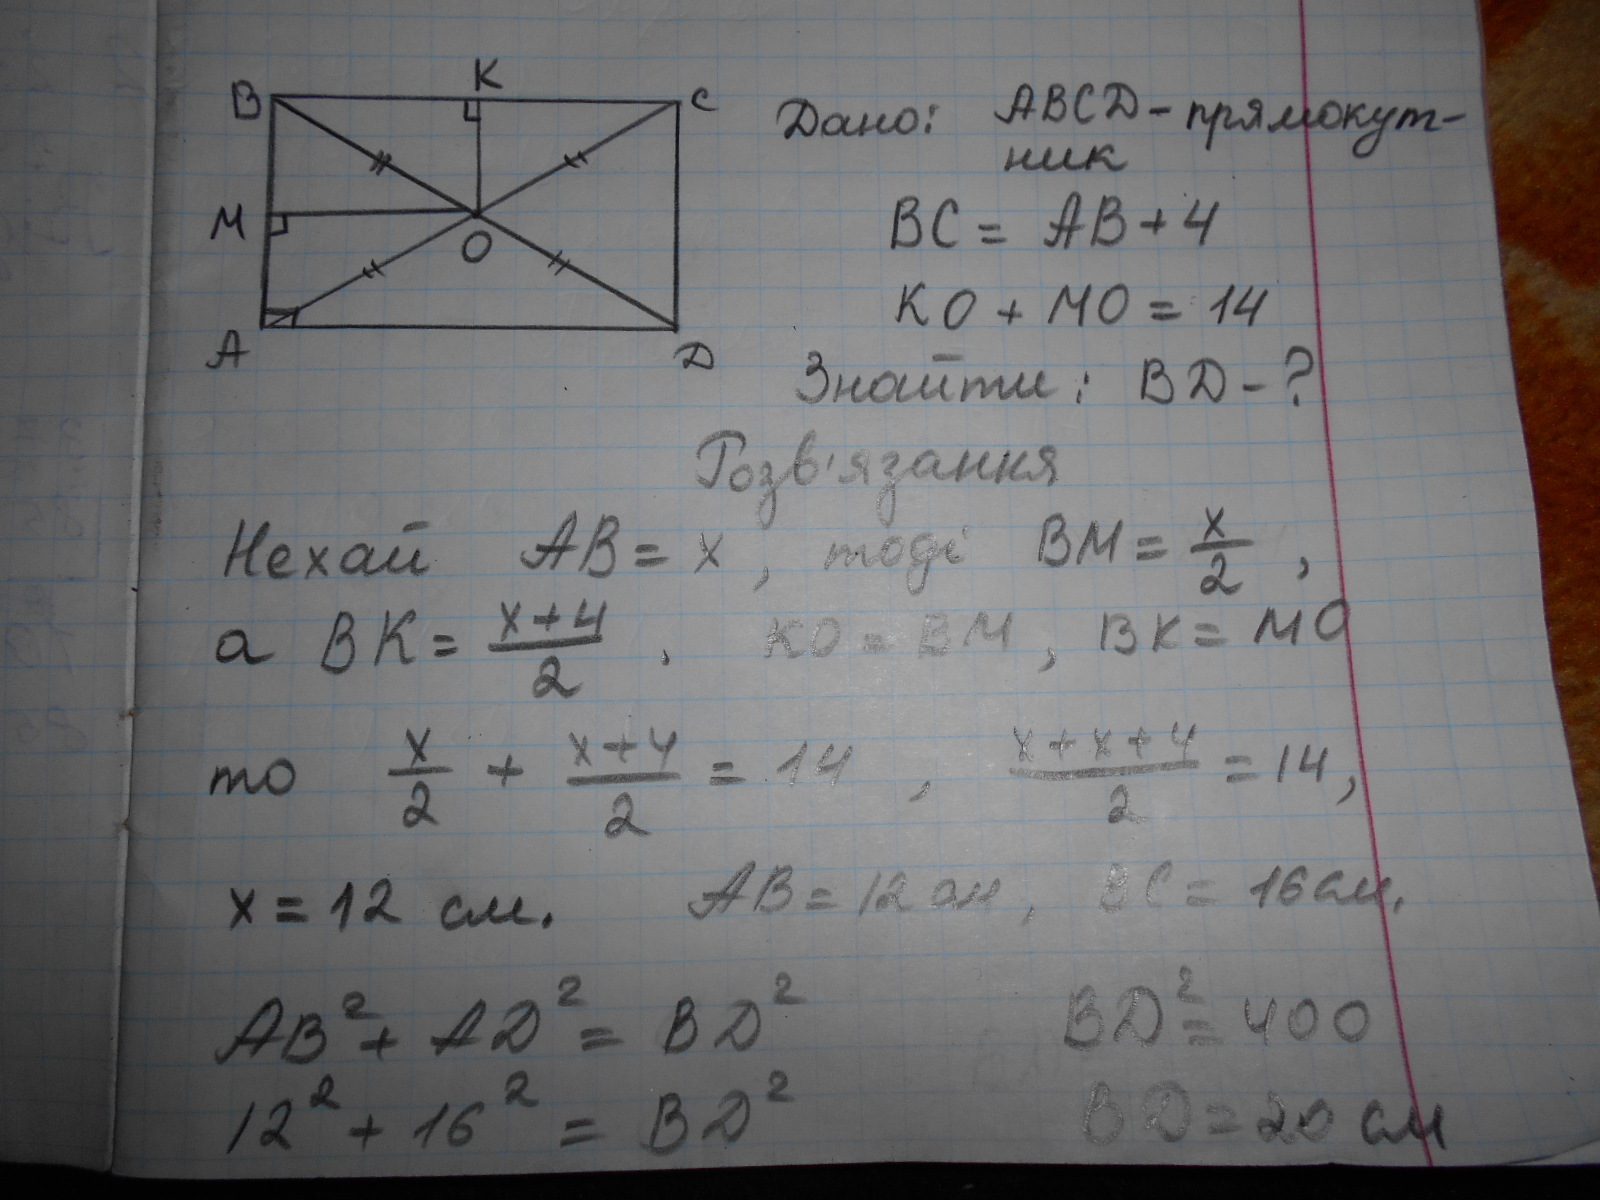 B K C
M O
A D
Дано: ABCD - прямокут-
ник
BC = AB + 4
KO + MO = 14
Знайти: BD - ?
Розв'язання
Нехай AB = x, тоді BM = x/2,
а BK = (x+4)/2, KO = BM, BK = MO
то x/2 + (x+4)/2 = 14, (x+x+4)/2 = 14,
x = 12 см. AB = 12 см, BC = 16 см.
AB² + AD² = BD² BD² = 400
12² + 16² = BD² BD = 20 см